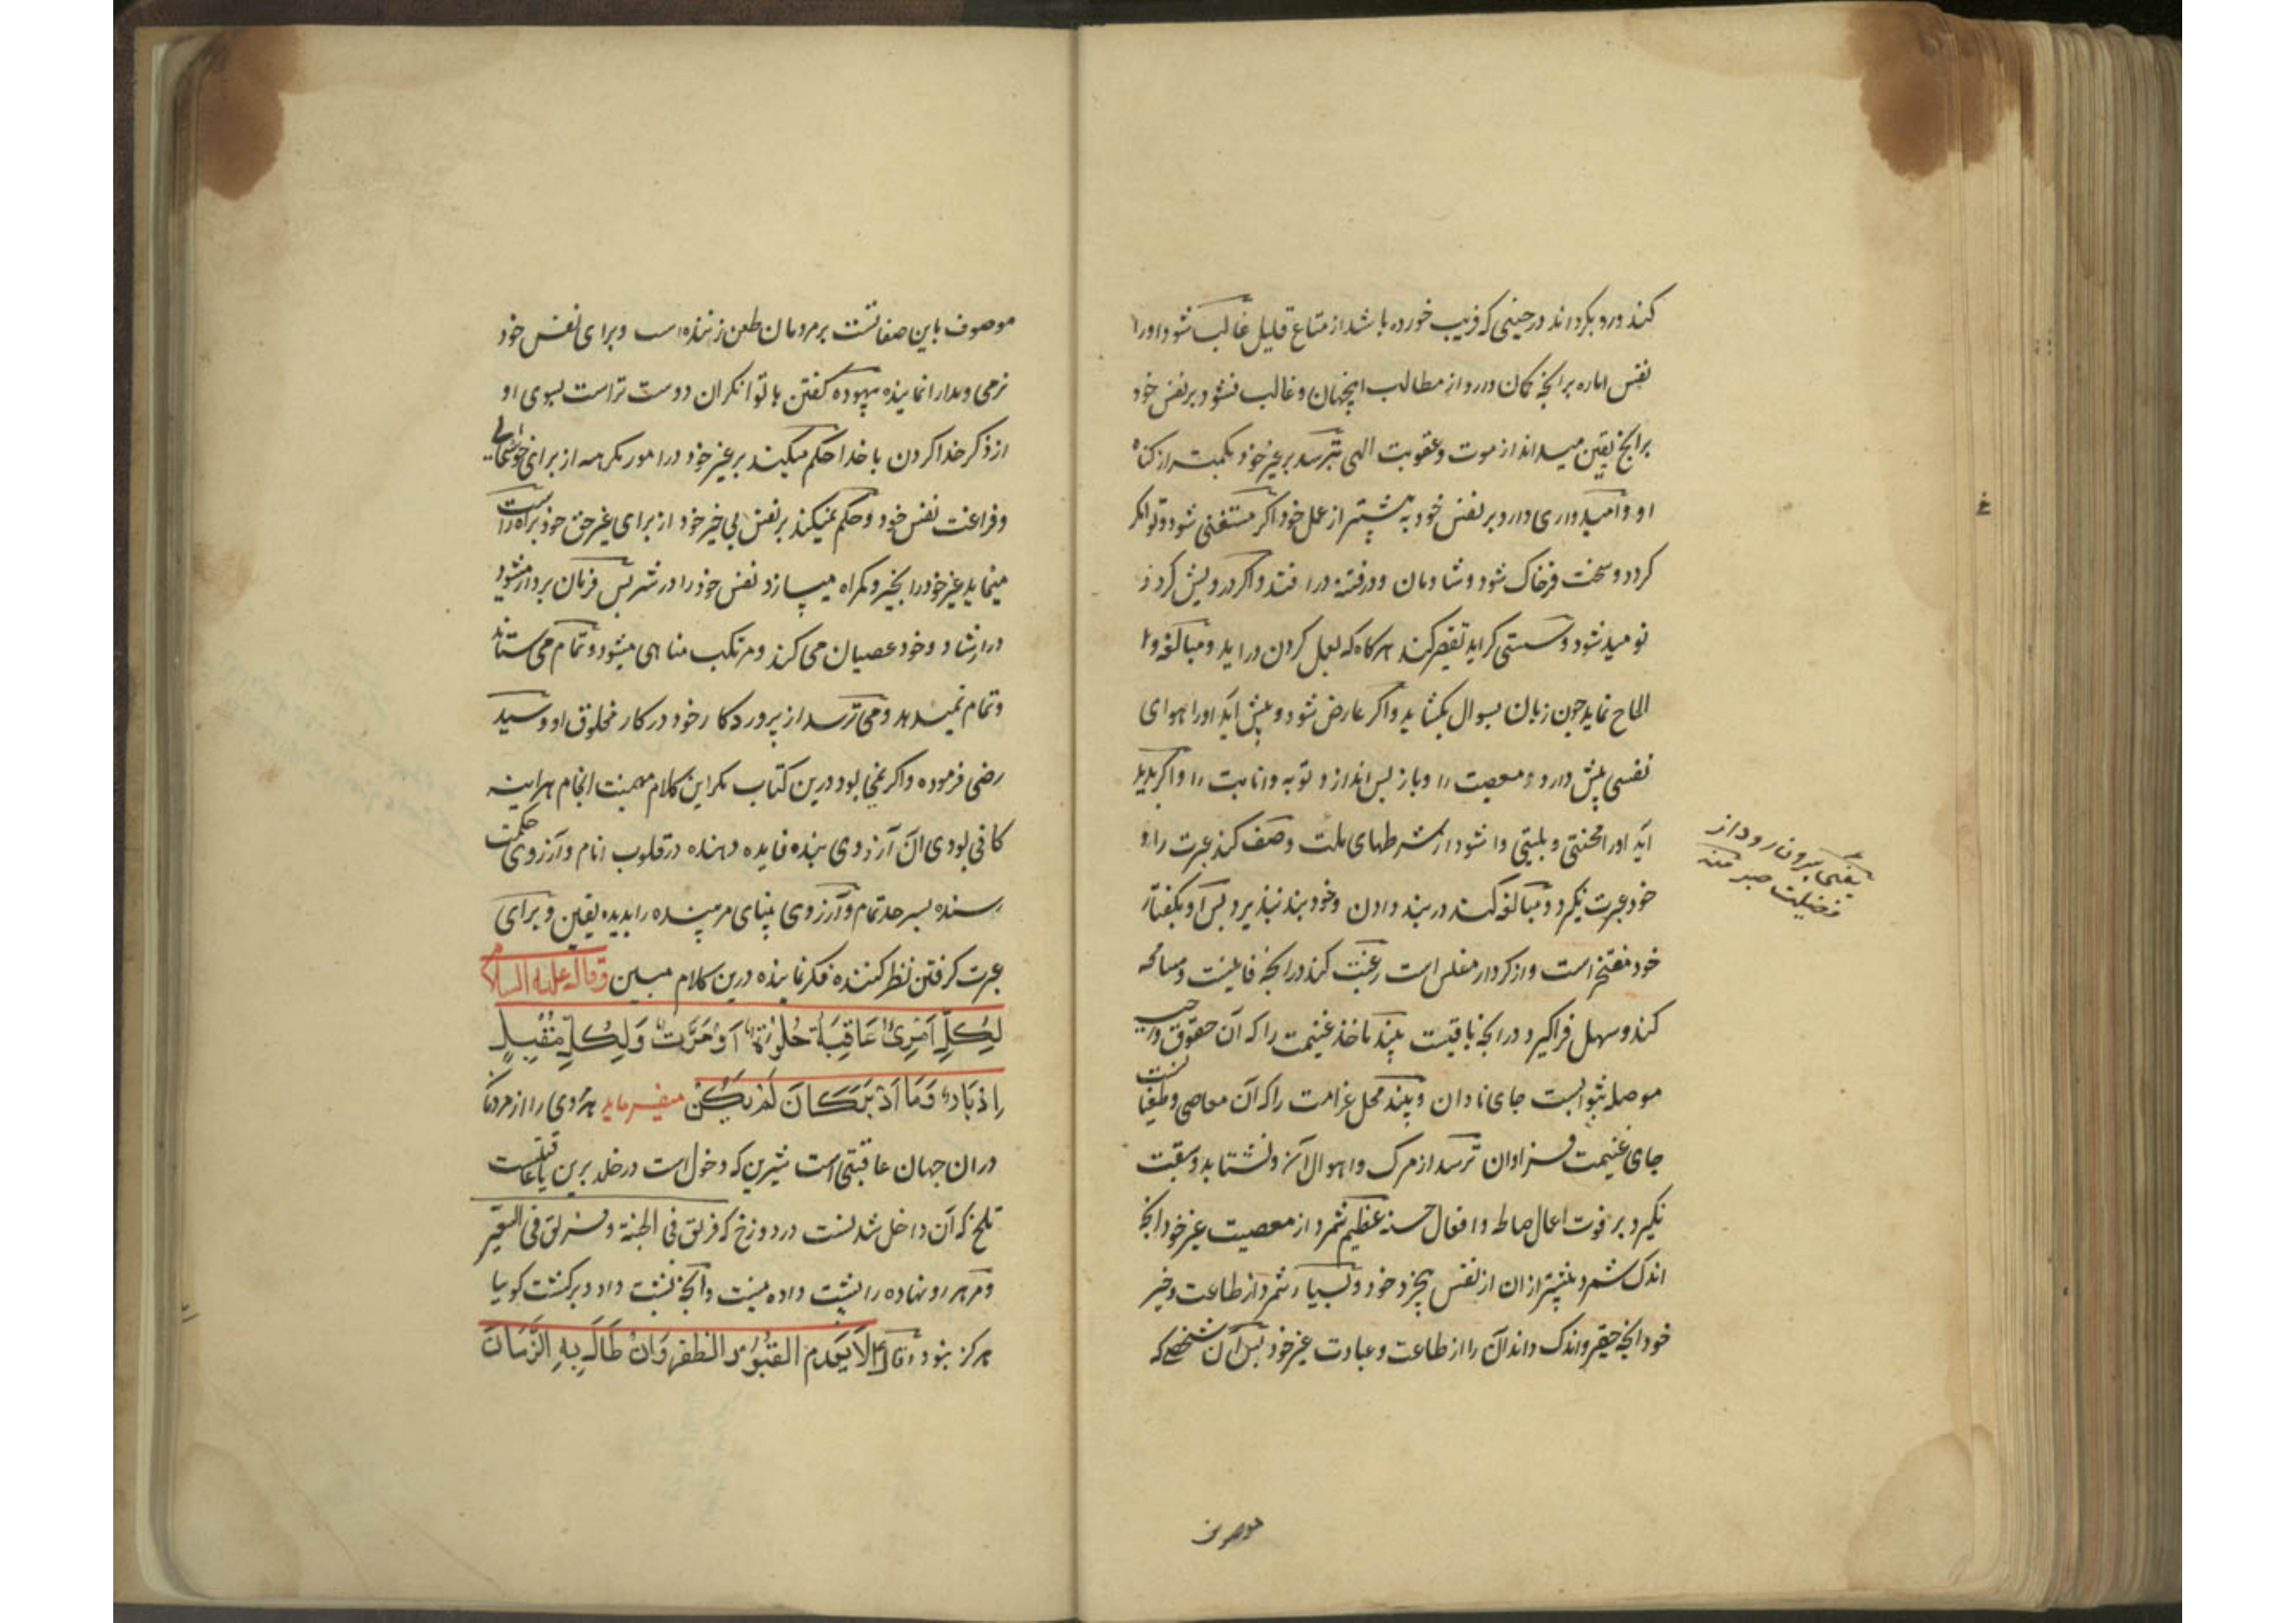 کند و رو بگرداند در حینی که فریب خورده باشد از متاع قلیل غالب شود او را
نفس اماره بر انچه کمان دارد از مطالب اینجهان و غالب نشود بر نفس خود
بر انچه یقین میداند از موت و عقوبت الهی بترسد بر غیر خود بکمتر از کناه
او و امیدواری دارد بر نفس خود به بیشتر از عمل خود اکر مستغنی شود و توانکر
کردد و سخت فرحناک شود و شادمان و در فتنه در افتد و اکر درویش کردد
نومید شود و سستی کراید تقصیر کند هرکاه که بعمل کردن در اید و مبالغه و
الحاح نماید چون زبان بسوال بکشاید و اکر عارض شود و پیش آید او را هوای
نفسی پیش دارد معصیت را و باز پس اندازد توبه و انابت را و اکر پدید
آید او را محنتی و بلیتی وا شود از شرطهای ملت وصف کند عبرت را و
خود عبرت نکیرد و مبالغه کند در پند دادن و خود پند نپذیرد پس او بکفتار
خود مفتخر است و از کردار مفلس است رغبت کند در انچه فانیست و مسامحه
کند و سهل فراکیرد در انچه باقیست بیند ماخذ غنیمت را که آن حقوق واجب
موصله بثوابست جای تاوان و بیند محل غرامت را که آن معاصی و طغیانست
جای غنیمت فراوان ترسد از مرک و اهوال آن و نشتابد و سبقت
نکیرد بر فوت اعمال صالحه و افعال حسنه عظیم شمرد از معصیت غیر خود انچه
اندک شمرد بیشتر از ان از نفس بیخرد خود و بسیار شمرد از طاعت و خیر
خود انچه حقیر و اندک داند آن را از طاعت و عبادت غیر خود پس آن شخصی که
یعنی بیرون رود از
فضیلت صبر منه
موصوف
موصوف باین صفاتست بر مردمان طعن زننده است و برای نفس خود
نرمی و مدارا نماینده بیهوده کفتن با توانکران دوست تر است بسوی او
از ذکر خدا کردن با خدا حکم میکند بر غیر خود در امور مکرمه از برای خوشحالی
و فراغت نفس خود و حکم نمیکند بر نفس بی خیر خود از برای غیر حق خود براه راست
مینماید غیر خود را بخیر و کمراه میسازد نفس خود را در شر پس فرمان بردار میشود
در ارشاد و خود عصیان می کند و مرتکب مناهی میشود و تمام می ستاند
و تمام نمیدهد و می ترسد از پروردکار خود در کار مخلوق او و سید
رضی فرموده و اکر نمی بود درین کتاب مکر این کلام میمنت انجام هراینه
کافی بودی ان آرزوی پند فایده دهنده در قلوب انام و آرزوی حکمت
رسنده بسر حد تمام و آرزوی بینای مر بیننده را بدیده یقین و برای
عبرت کرفتن نظر کننده فکر نماینده درین کلام مبین وقال علیه السلام
لِكُلِّ امْرِئٍ عَاقِبَةٌ حُلْوَةٌ اَوْ مُرَّةٌ وَلِكُلِّ مُقْبِلٍ
اِدْبَارٌ وَمَا اَدْبَرَ كَانَ لَمْ يَكُنْ میفرماید هر ادمی را از مردمان
در ان جهان عاقبتی است شیرین که دخول است در خلد برین یا عاقبتیست
تلخ که آن داخل شدنست در دوزخ که فریق فی الجنة و فریق فی السعیر
و مر هر رو نهاده را پشت داده نیست و انچه پشت داد و برکشت کویا
هرکز نبود وقال ع لاَ يَعْدَمُ الصَّبُورُ الظَّفَرَ وَاِنْ طَالَ بِهِ الزَّمَانُ